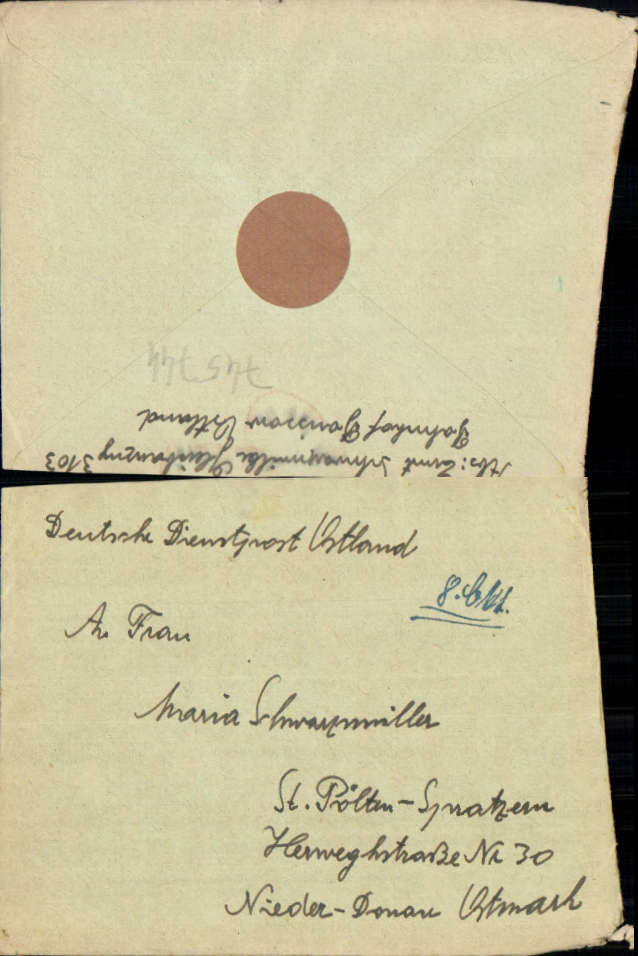 745744
Abs: Ernst Schwarzmüller 3103
Bahnhof Ostland
Deutsche Dienstpost Ostland
8. Okt.
An Frau
Maria Schwarzmüller
St. Pölten - Spratzern
Herweghstraße Nr 30
Nieder-Donau Ostmark